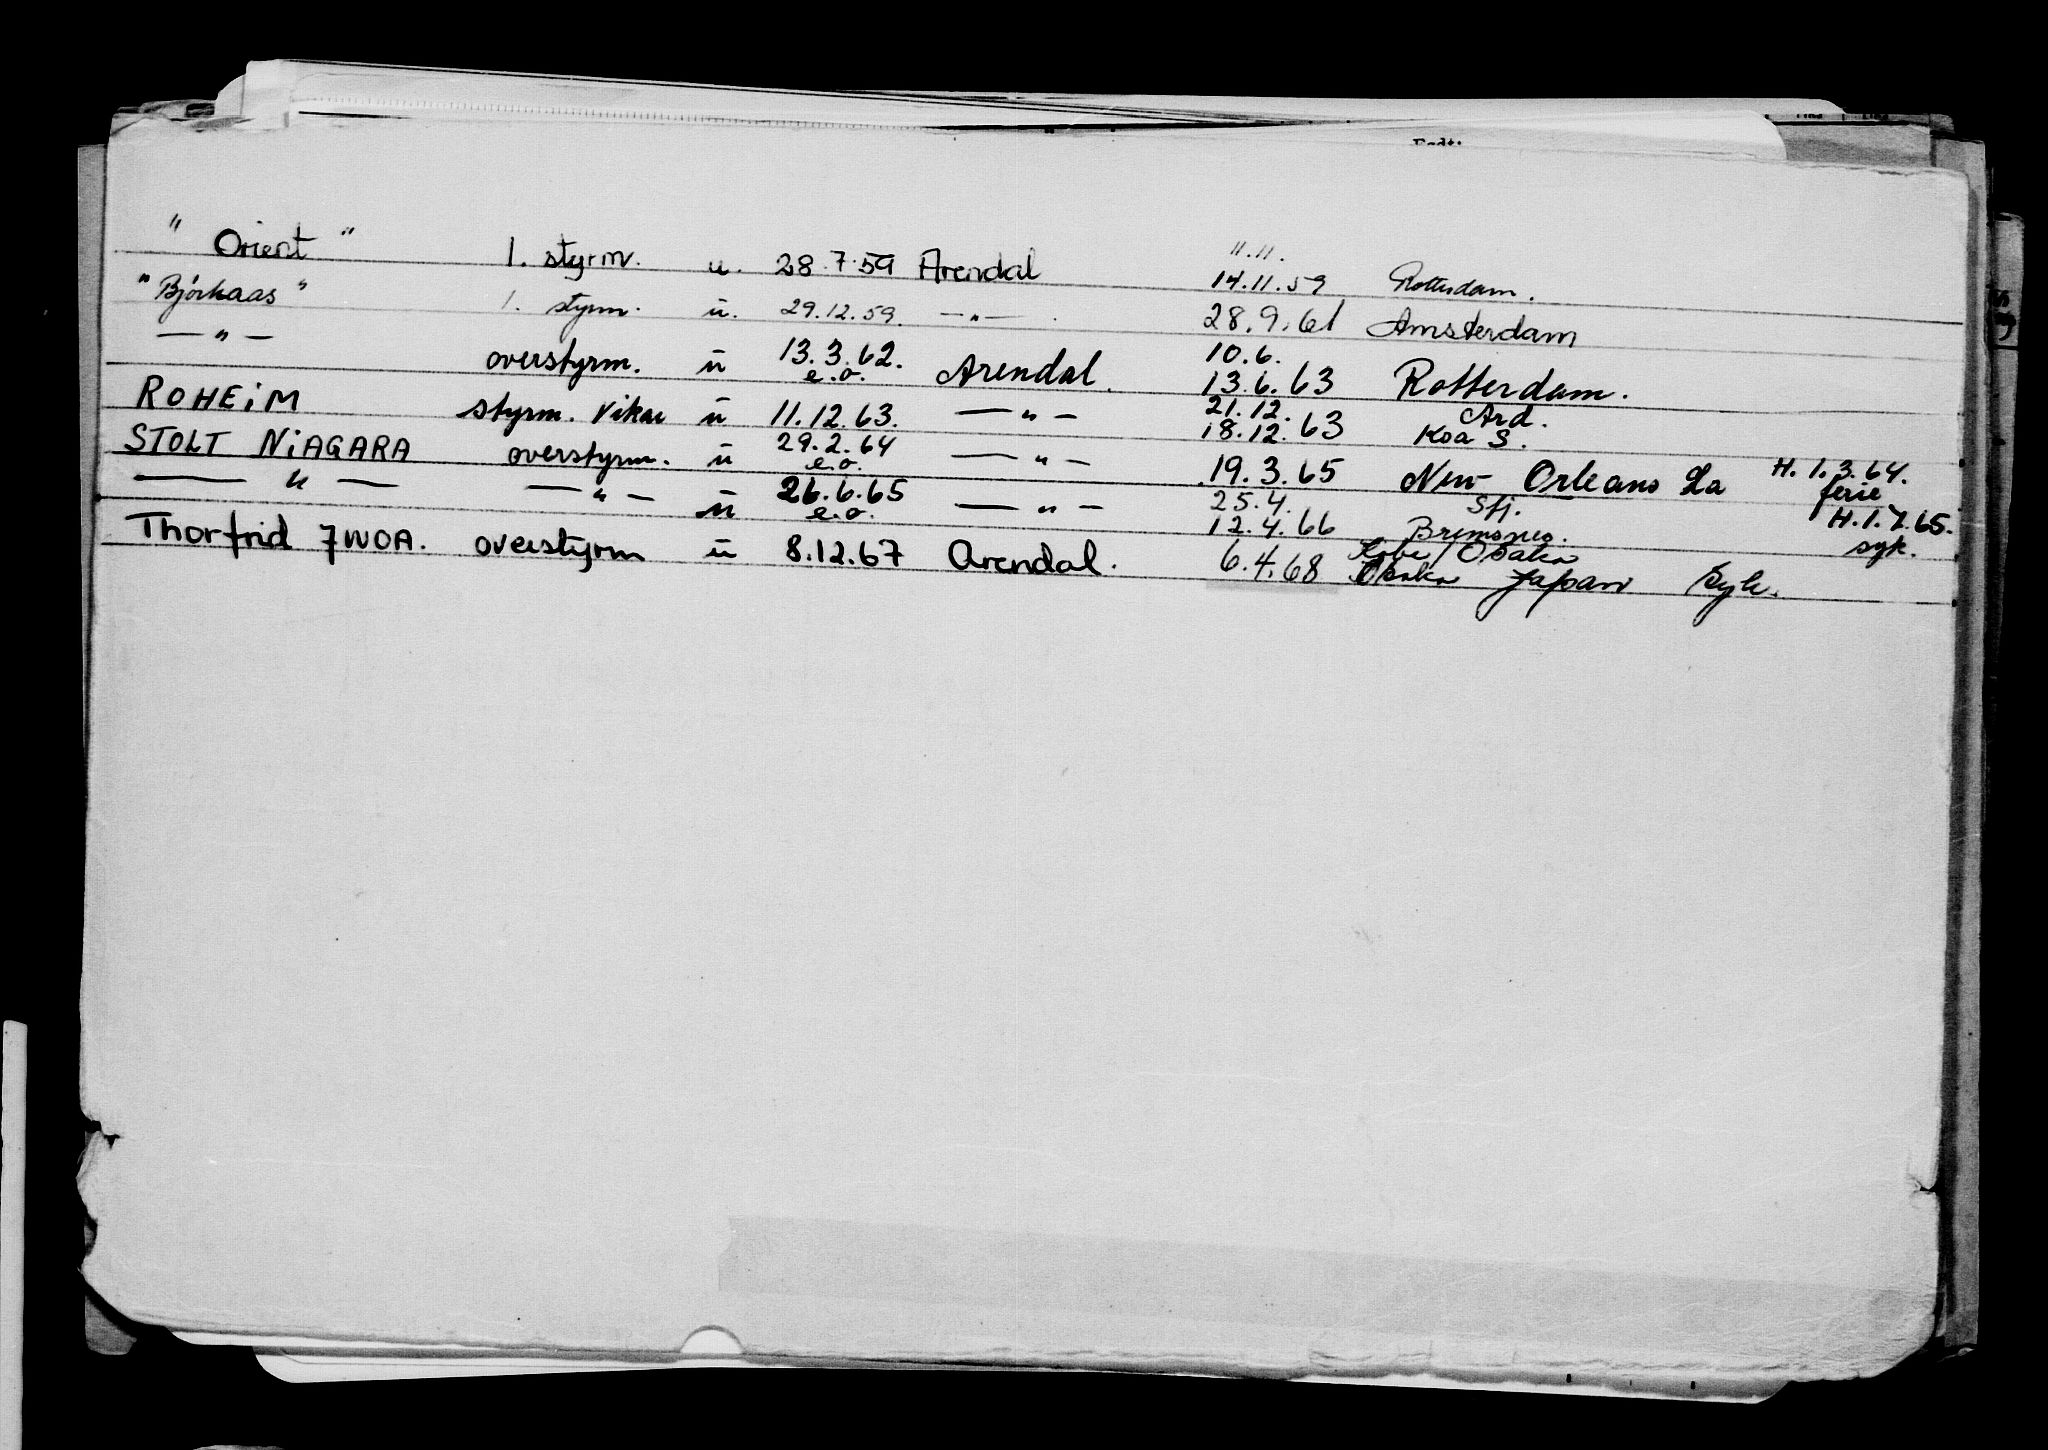 " Orient " 1. styrm. u. 28.7.59 Arendal 11.11. 14.11.59 Rotterdam.
" Bjórkaas " 1. styrm. u. 29.12.59. — " — 28.9.61 Amsterdam
— " — overstyrm. u 13.3.62. e.o. Arendal. 10.6. 13.6.63 Rotterdam.
ROHEiM styrm. vikar u 11.12.63. — " — 21.12. 18.12.63 Ard. Koa S.
STOLT NiAGARA overstyrm. u 29.2.64 e.o. — " — 19.3.65 New Orleans La H. 1.3.64. ferie
— " — — " — u 26.6.65 e.o. — " — 25.4. 12.4.66 Sfj. H.1.7.65. syk.
Thorfrid 7WOA. overstyrm u 8.12.67 Arendal. 6.4.68 Kobe/Osaka Osaka Japan Syk.